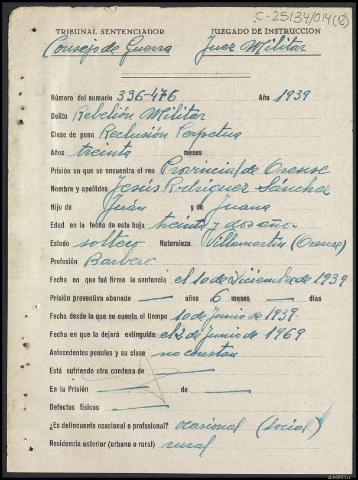 C-25134/014(12)
TRIBUNAL SENTENCIADOR JUZGADO DE INSTRUCCIÓN
Consejo de Guerra Juez Militar
Número del sumario 336-476 Año 1939
Delito Rebelión Militar
Clase de pena Reclusión Perpetua
Años treinta meses
Prisión en que se encuentra el reo Provincial de Orense
Nombre y apellidos Jesús Rodríguez Sánchez
Hijo de Juán y de Juana
Edad en la fecha de esta hoja treinta y dos años
Estado soltero Naturaleza Villamartin (Orense)
Profesión Barbero
Fecha en que fué firme la sentencia el 10 de Diciembre de 1939
Prisión preventiva abonada — años 6 meses — días
Fecha desde la que se cuenta el tiempo 10 de Junio de 1939-
Fecha en que la dejará extinguida el 2 de Junio de 1969
Antecedentes penales y su clase no constan
Está sufriendo otra condena de —
En la Prisión — de —
Defectos físicos —
¿Es delincuente ocasional o profesional? ocasional (Social)
Residencia anterior (urbana o rural) rural
AHPOu